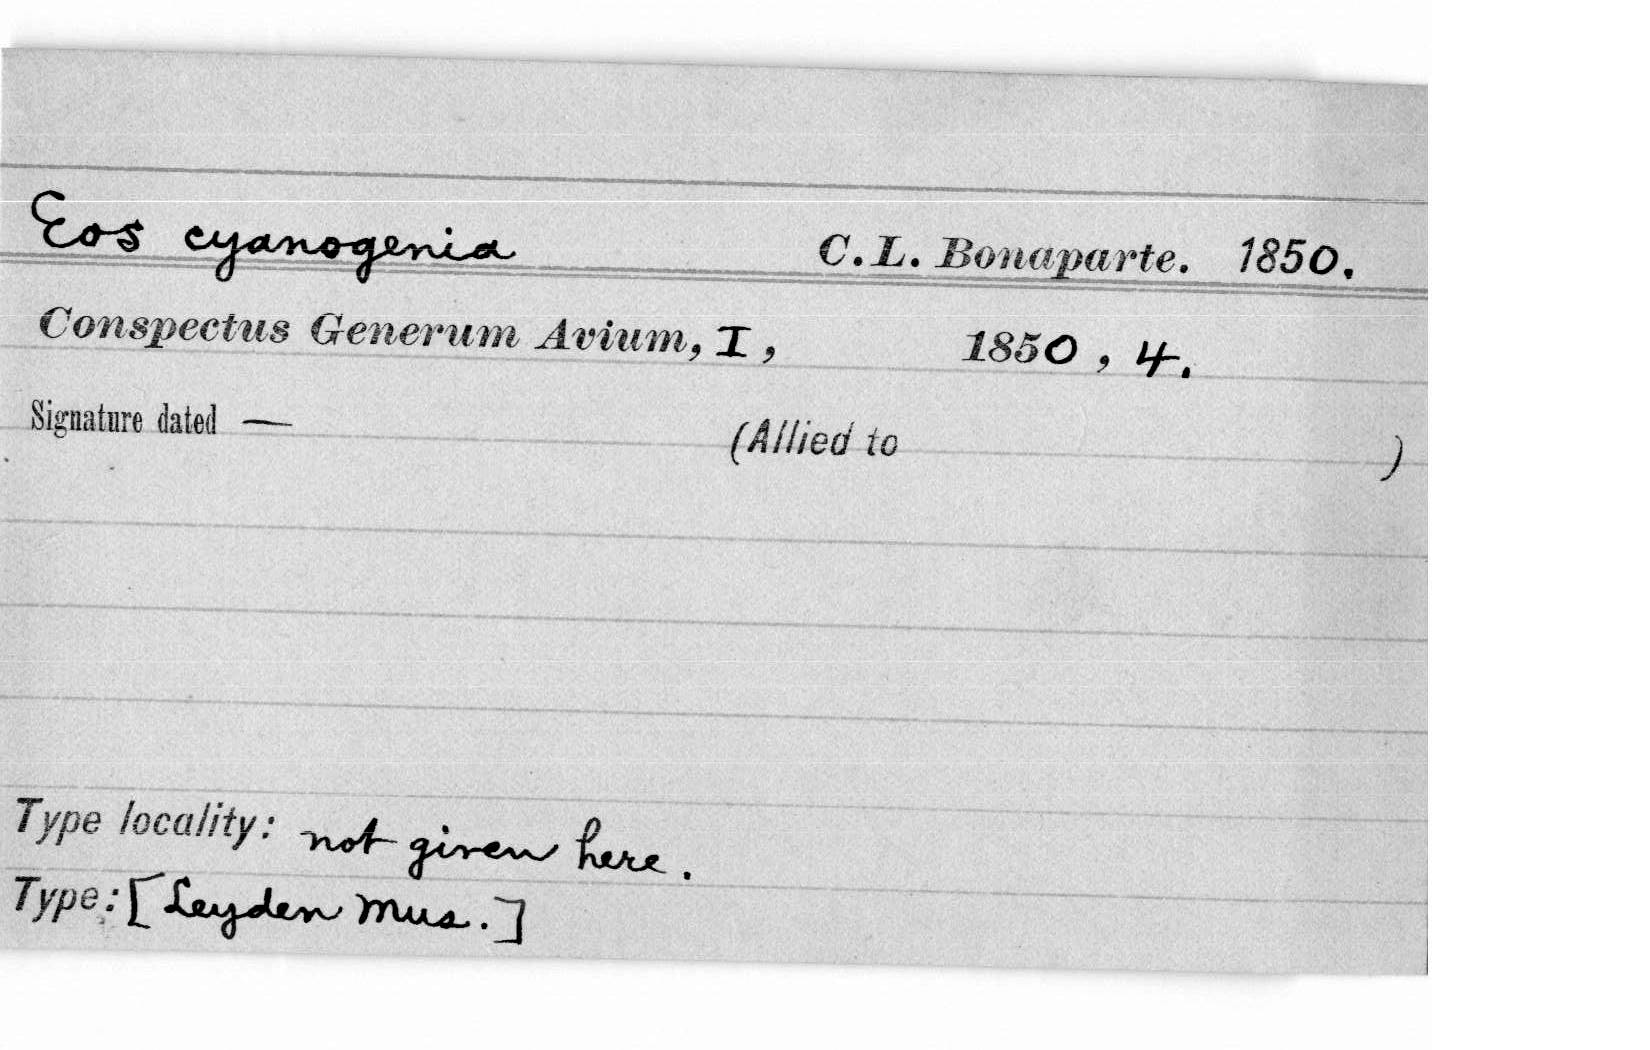 Eos cyanogenia C. L. Bonaparte. 1850.
Conspectus Generum Avium, I, 1850, 4.
Signature dated — (Allied to )
Type locality: not given here.
Type: [Leyden Mus.]